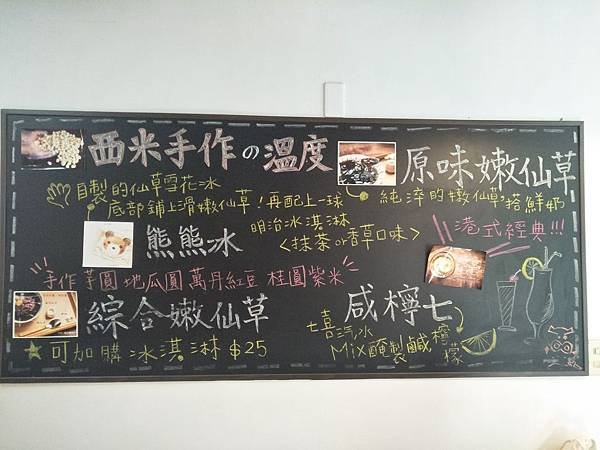 西米手作の溫度
原味嫩仙草
自製的仙草雪花冰
底部鋪上滑嫩仙草!再配上一球
明治冰淇淋
<抹茶or香草口味>
純淬的嫩仙草,搭鮮奶
熊熊冰
港式經典!!!
手作芋圓 地瓜圓 萬丹紅豆 桂圓紫米
綜合嫩仙草
★可加購冰淇淋$25
咸檸七
七喜汽水
Mix醃製鹹檸檬